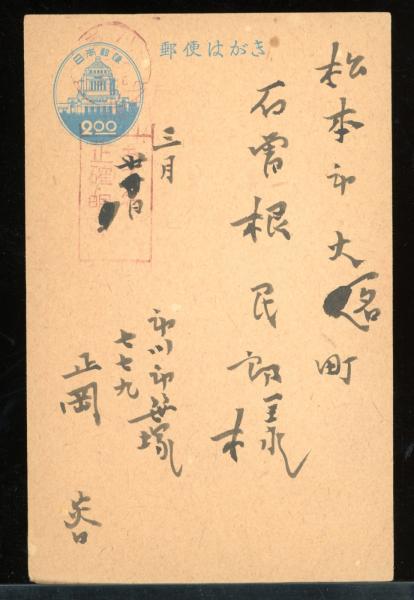 郵便はがき
日本郵便
2.00
松本市大名町
石曽根民郎様
三月
市川市菅塚
七七九
正岡
正確明